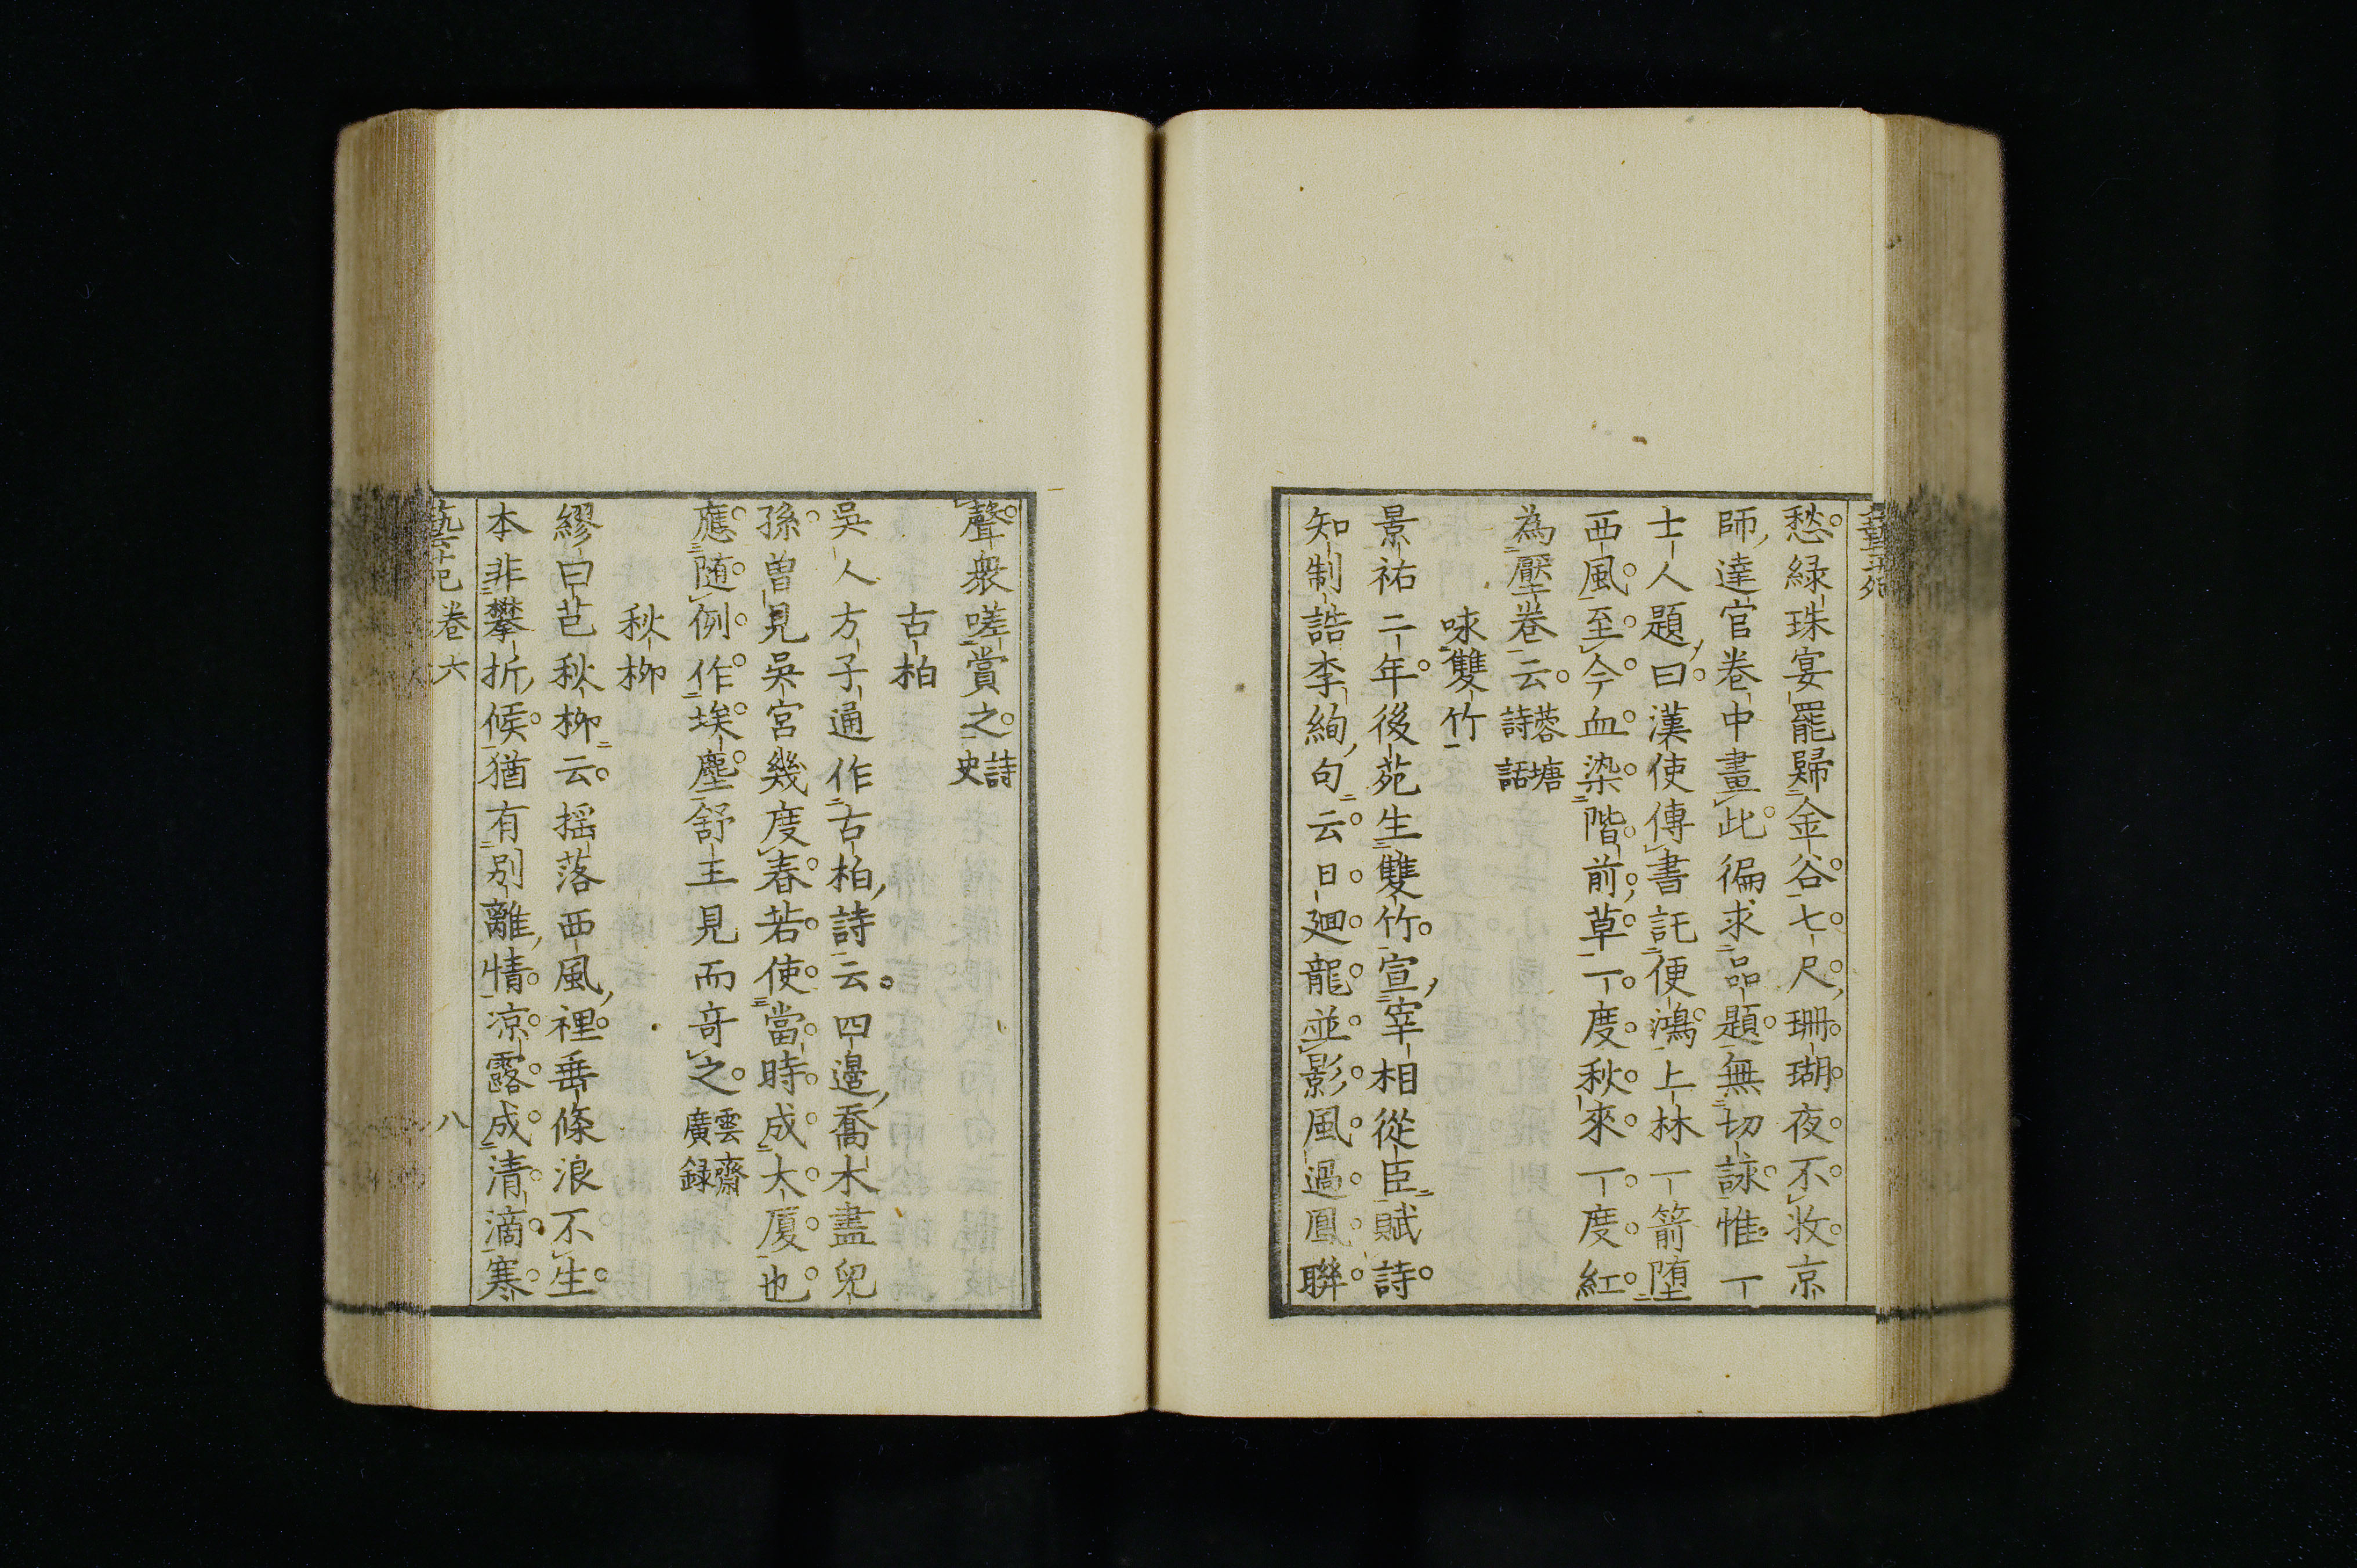 愁綠珠宴罷歸金谷七尺珊瑚夜不收京
師達官卷中畫此徧求品題無切詠惟一
士人題曰漢使傳書託便鴻上林一箭墮
西風至今血染階前草一度秋來一度紅
為壓卷云蓉塘詩話
咏雙竹
景祐二年後苑生雙竹宣宰相從臣賦詩
知制誥李絢句云日廻龍並影風過鳳聯
聲衆嗟賞之詩史
古柏
吳人方子通作古柏詩云四邊喬木盡兒
孫曽見吳宮幾度春若使當時成大厦也
應随例作埃塵舒王見而竒之雲齋廣録
秋柳
繆曰芑秋柳云揺落西風裡垂條浪不生
本非攀折候猶有別離情凉露成清滴寒
卷六
八